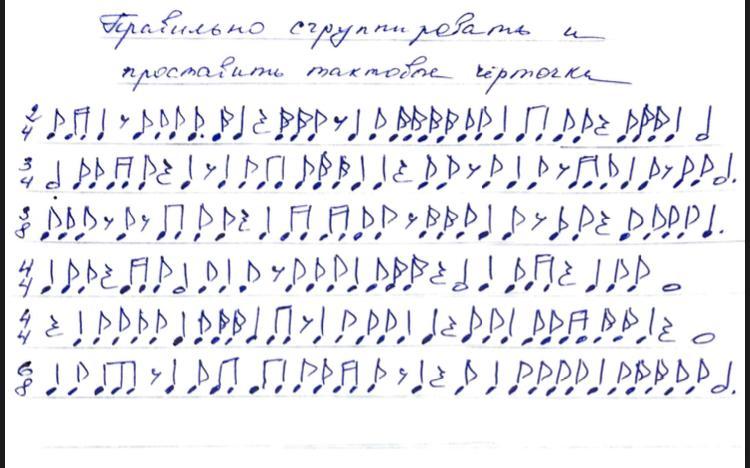 Правильно сгруппировать и
проставить тактовые чёрточки
2
4
3
4
3
8
4
4
4
4
6
8